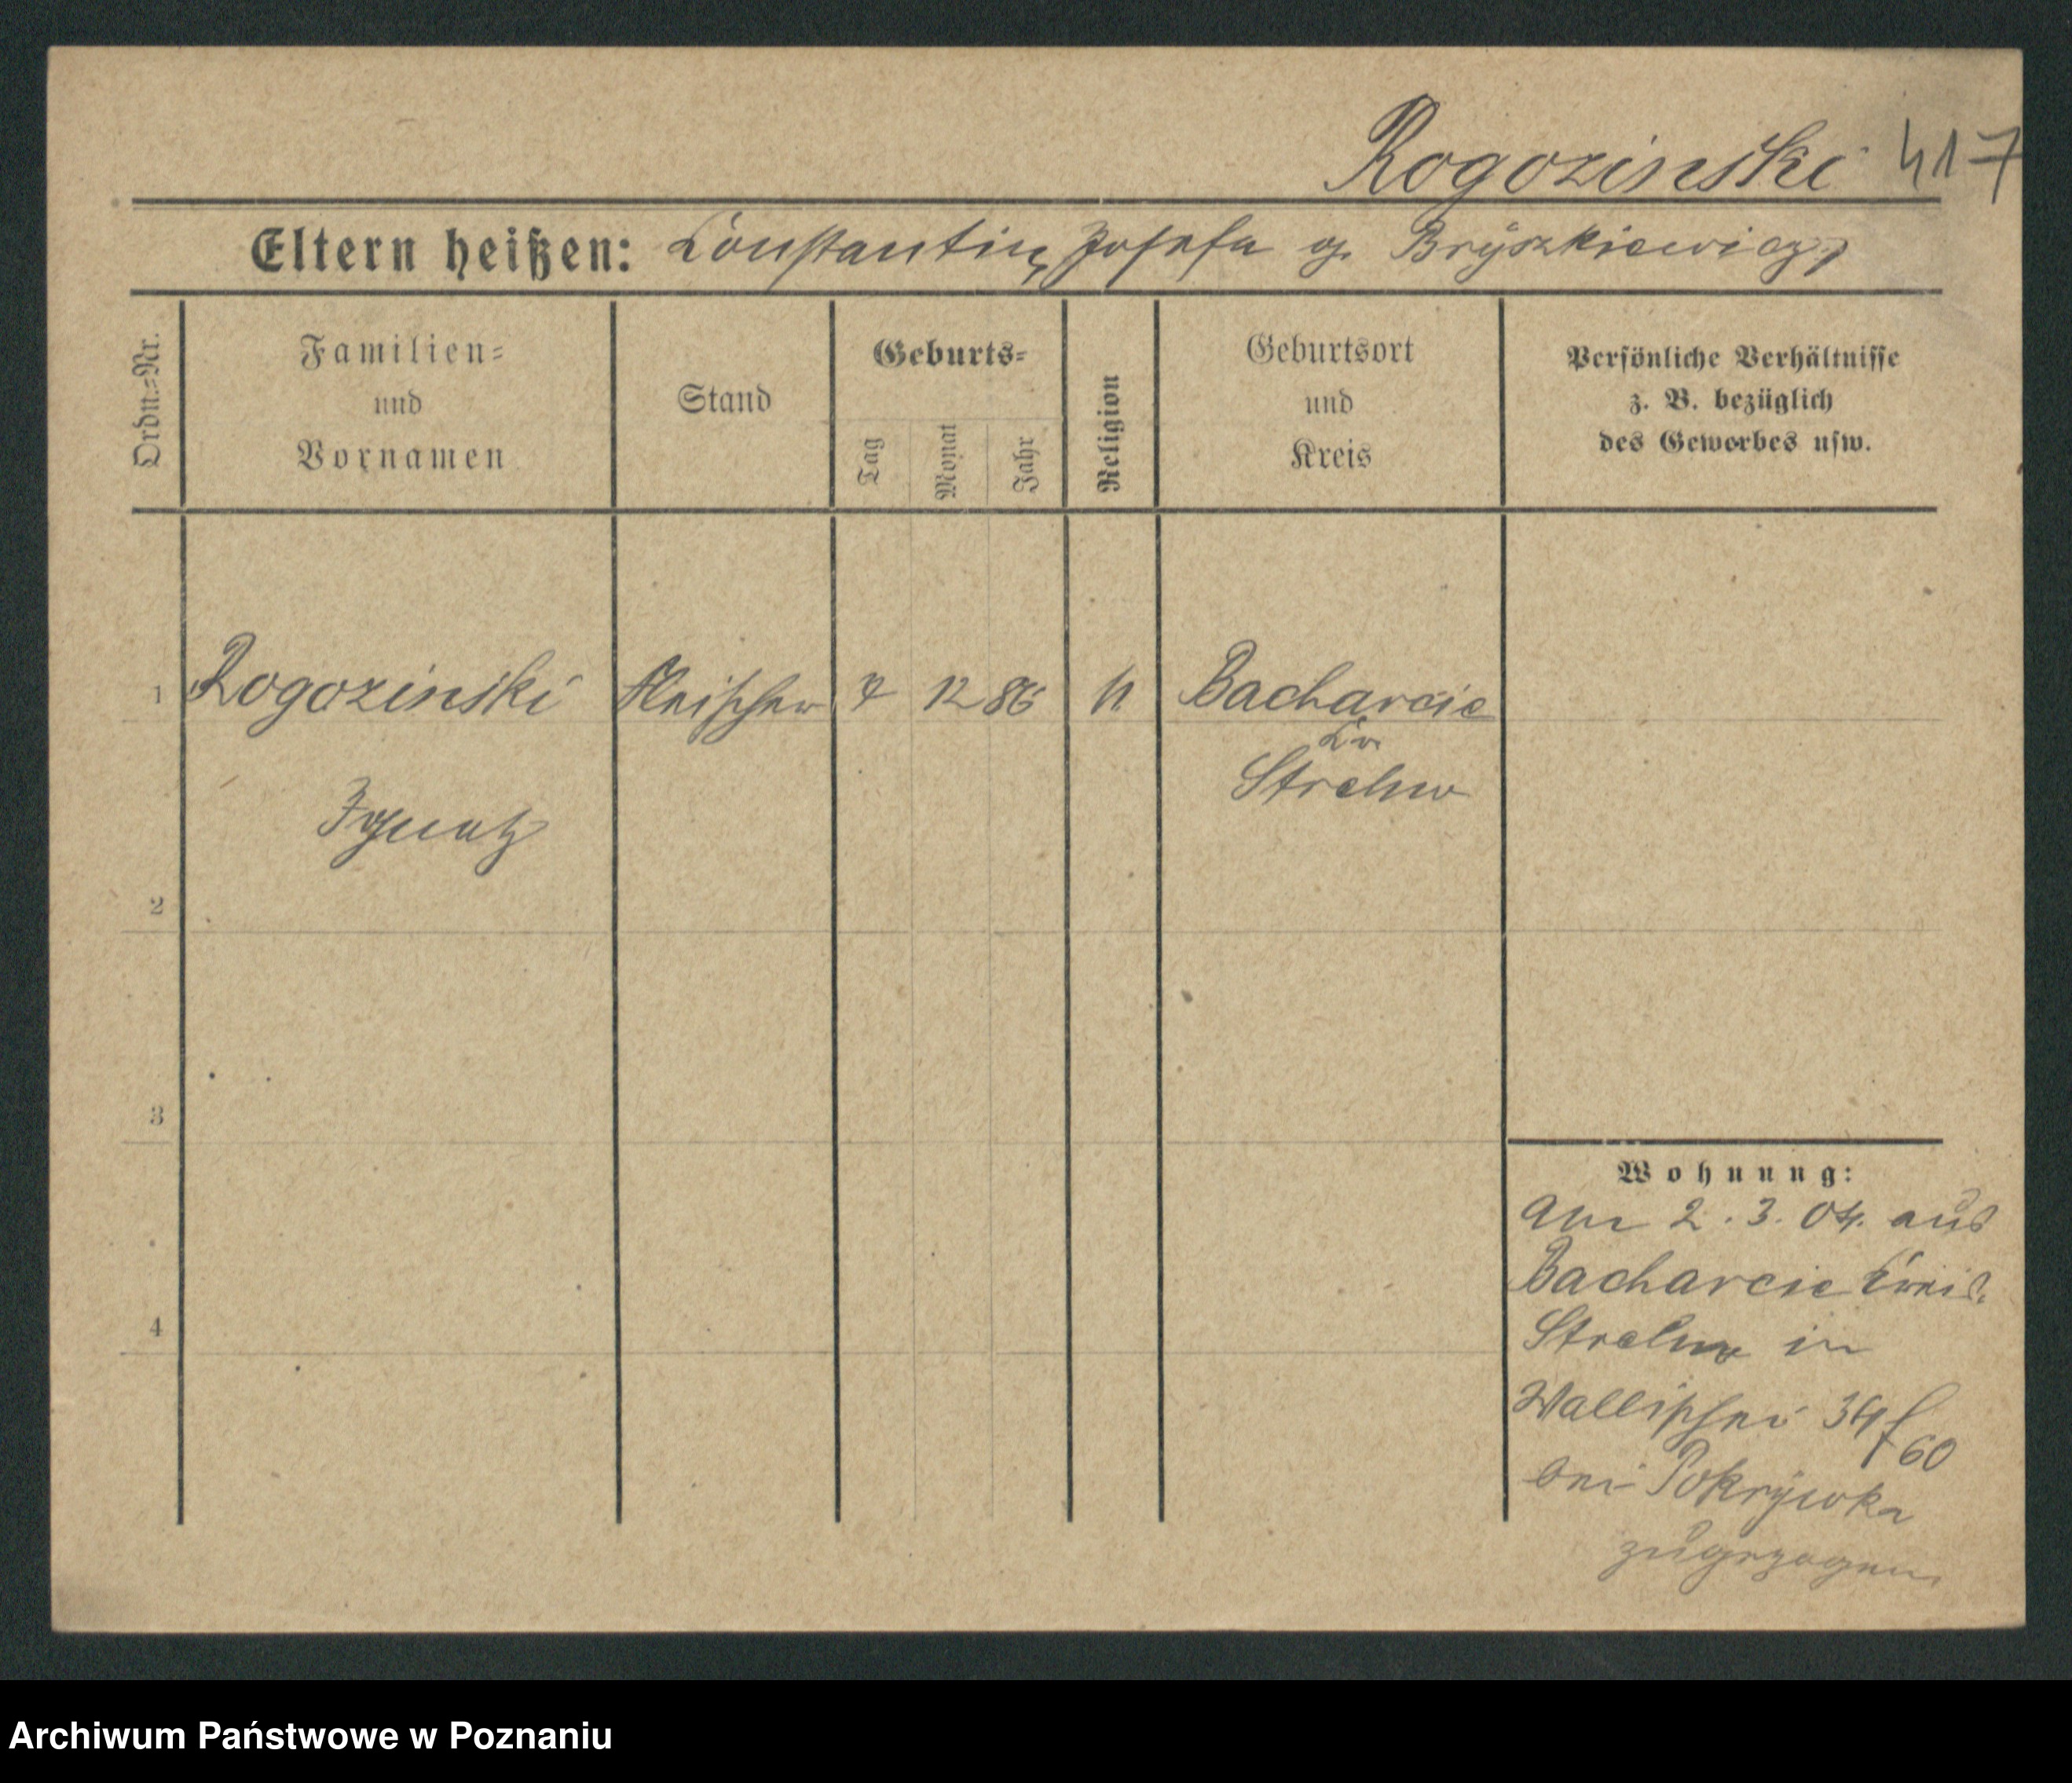 Rogozinski 417
Eltern heißen: Constantin, Josefa g. Bryszkiewicz,
Ordn.-Nr.
Familien-
und
Vornamen
Stand
Geburts-
Tag
Monat
Jahr
Religion
Geburtsort
und
Kreis
Persönliche Verhältnisse
z. B. bezüglich
des Gewerbes usw.
1 Rogozinski Fleischer 7 12 86 Bacharcie
Kr.
Strelno
Ignatz
2
3
4
Wohnung:
Am 2. 3. 04. aus
Bacharcie Kreis
Strelno in
Wallischei 34/60
bei Pokrywka
zugezogen.
Archiwum Państwowe w Poznaniu